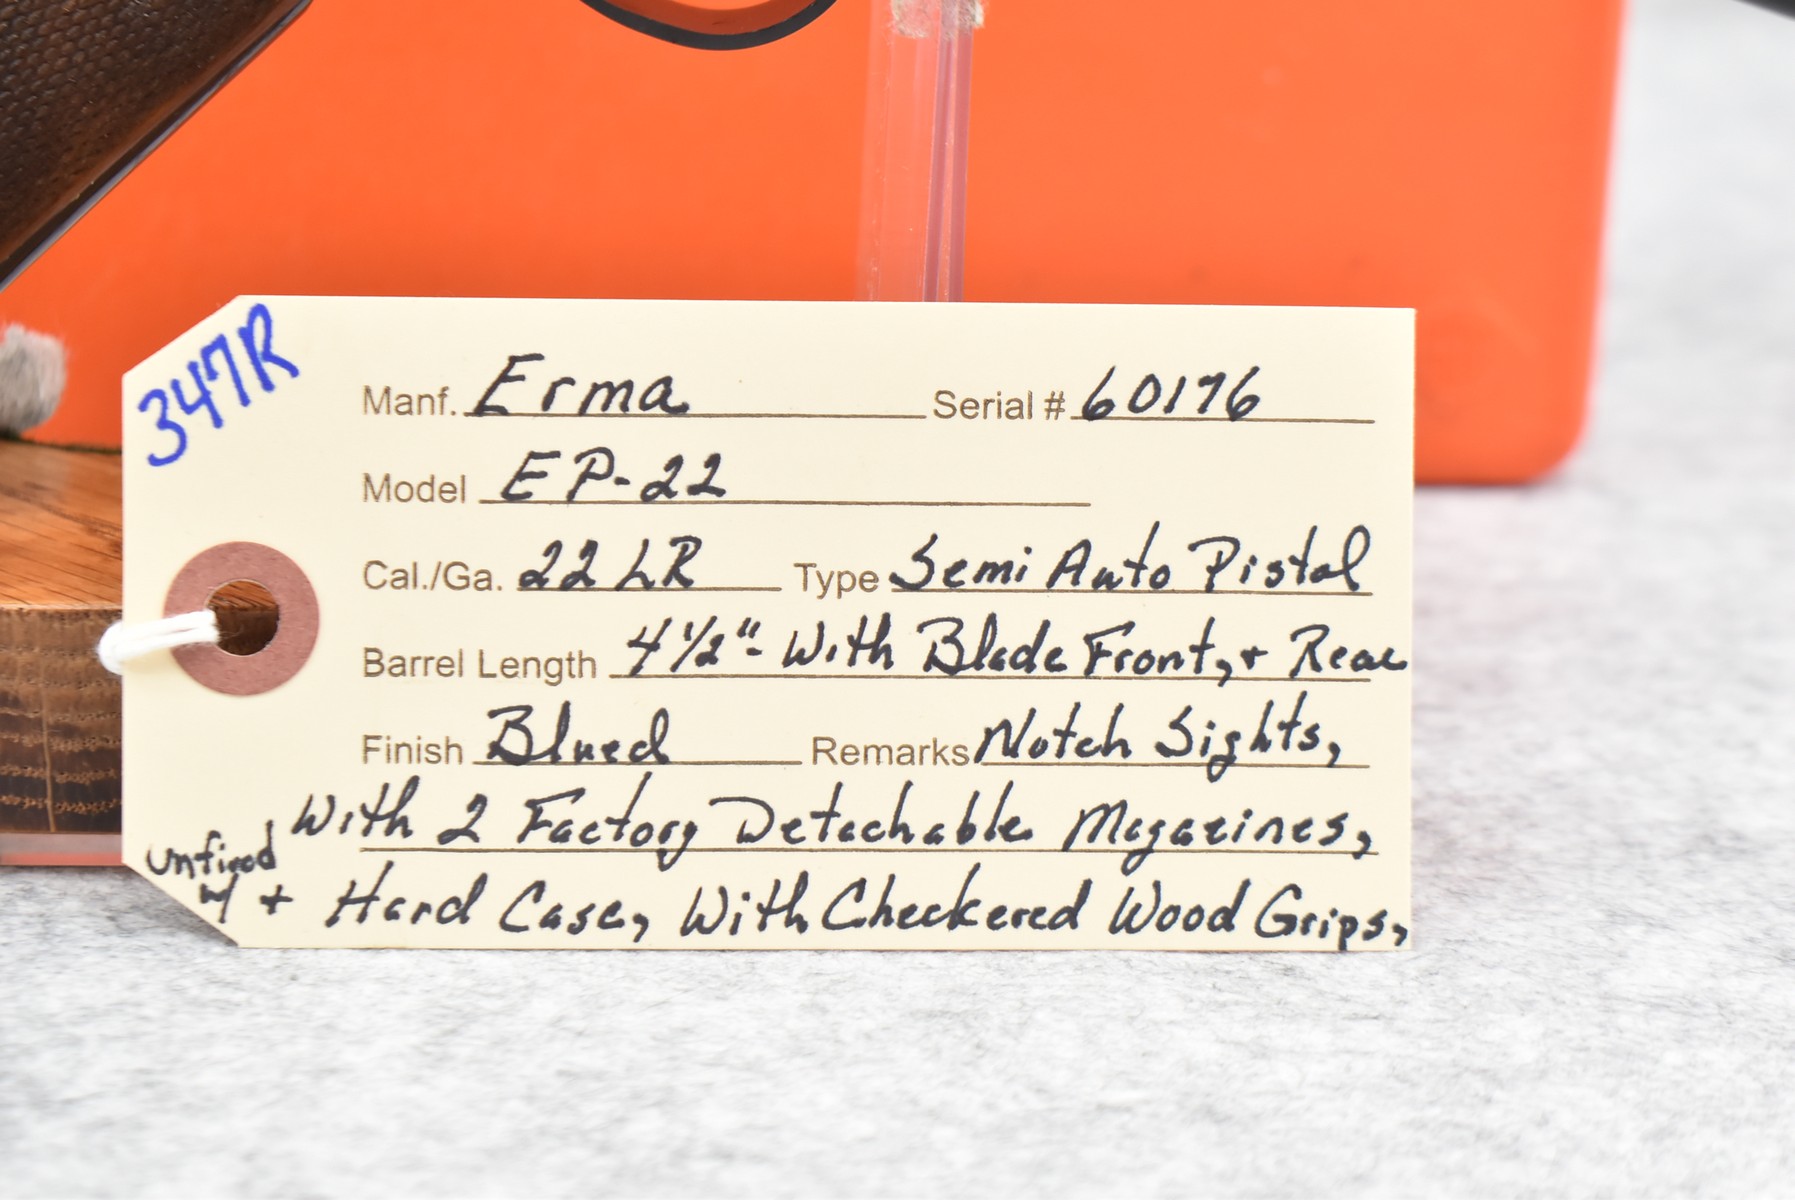 347R
Manf. Erma Serial # 60176
Model EP-22
Cal./Ga. 22 LR Type Semi Auto Pistol
Barrel Length 4 1/2" - With Blade Front, + Rear
Finish Blued Remarks Notch Sights,
With 2 Factory Detachable Magazines,
unfired
w/ + Hard Case, With Checkered Wood Grips,